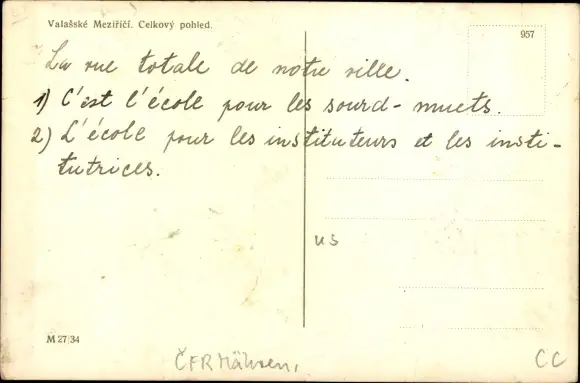 Valašské Meziříčí. Celkový pohled.
957
La rue totale de notre ville.
1) C'est l'école pour les sourd-muets.
2) L'école pour les instituteurs et les insti-
tutrices.
us
M 27/34
ČFR Mähren,
CC